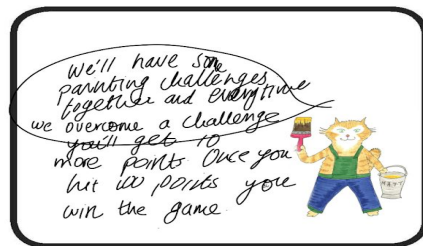 We'll have some
painting challenges
together and everytime
we overcome a challenge
you'll get 10
more points Once you
hit 100 points you
win the game.